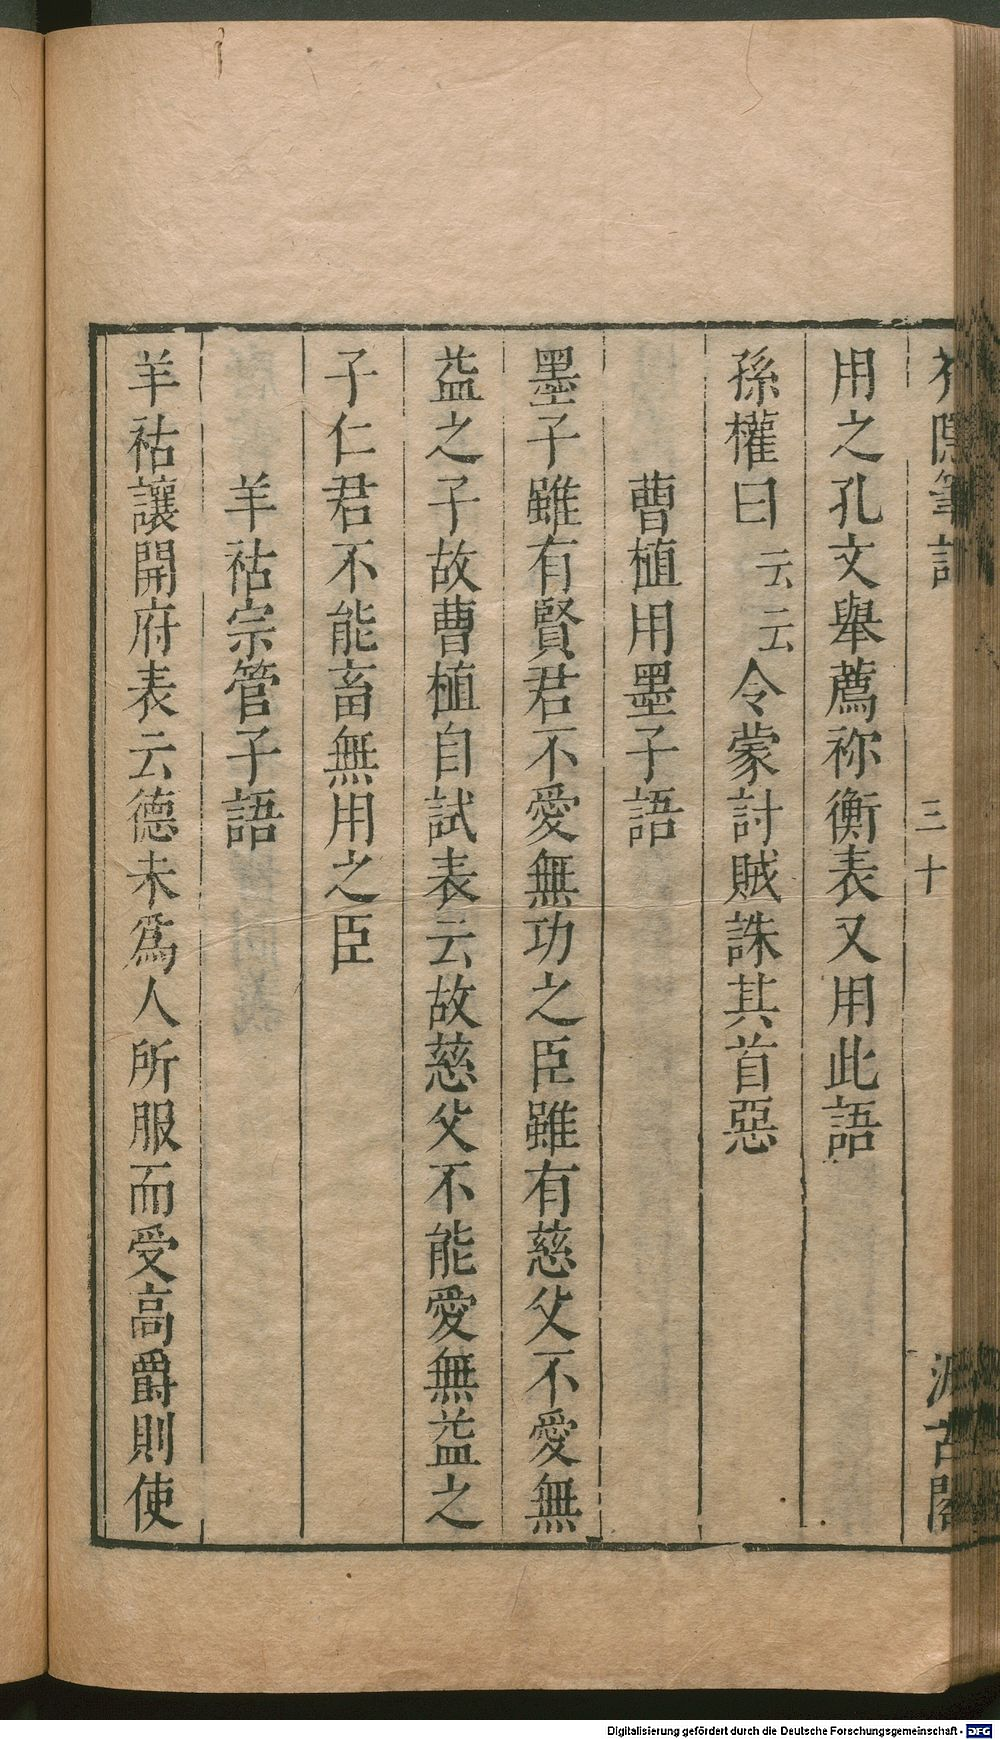 芥隱筆記
三十
汲古閣
用之孔文舉薦祢衡表又用此語
孫權曰云云令蒙討賊誅其首惡
曹植用墨子語
墨子雖有賢君不愛無功之臣雖有慈父不愛無
益之子故曹植自試表云故慈父不能愛無益之
子仁君不能畜無用之臣
羊祜宗管子語
羊祜讓開府表云德未爲人所服而受高爵則使
Digitalisierung gefördert durch die Deutsche Forschungsgemeinschaft - DFG